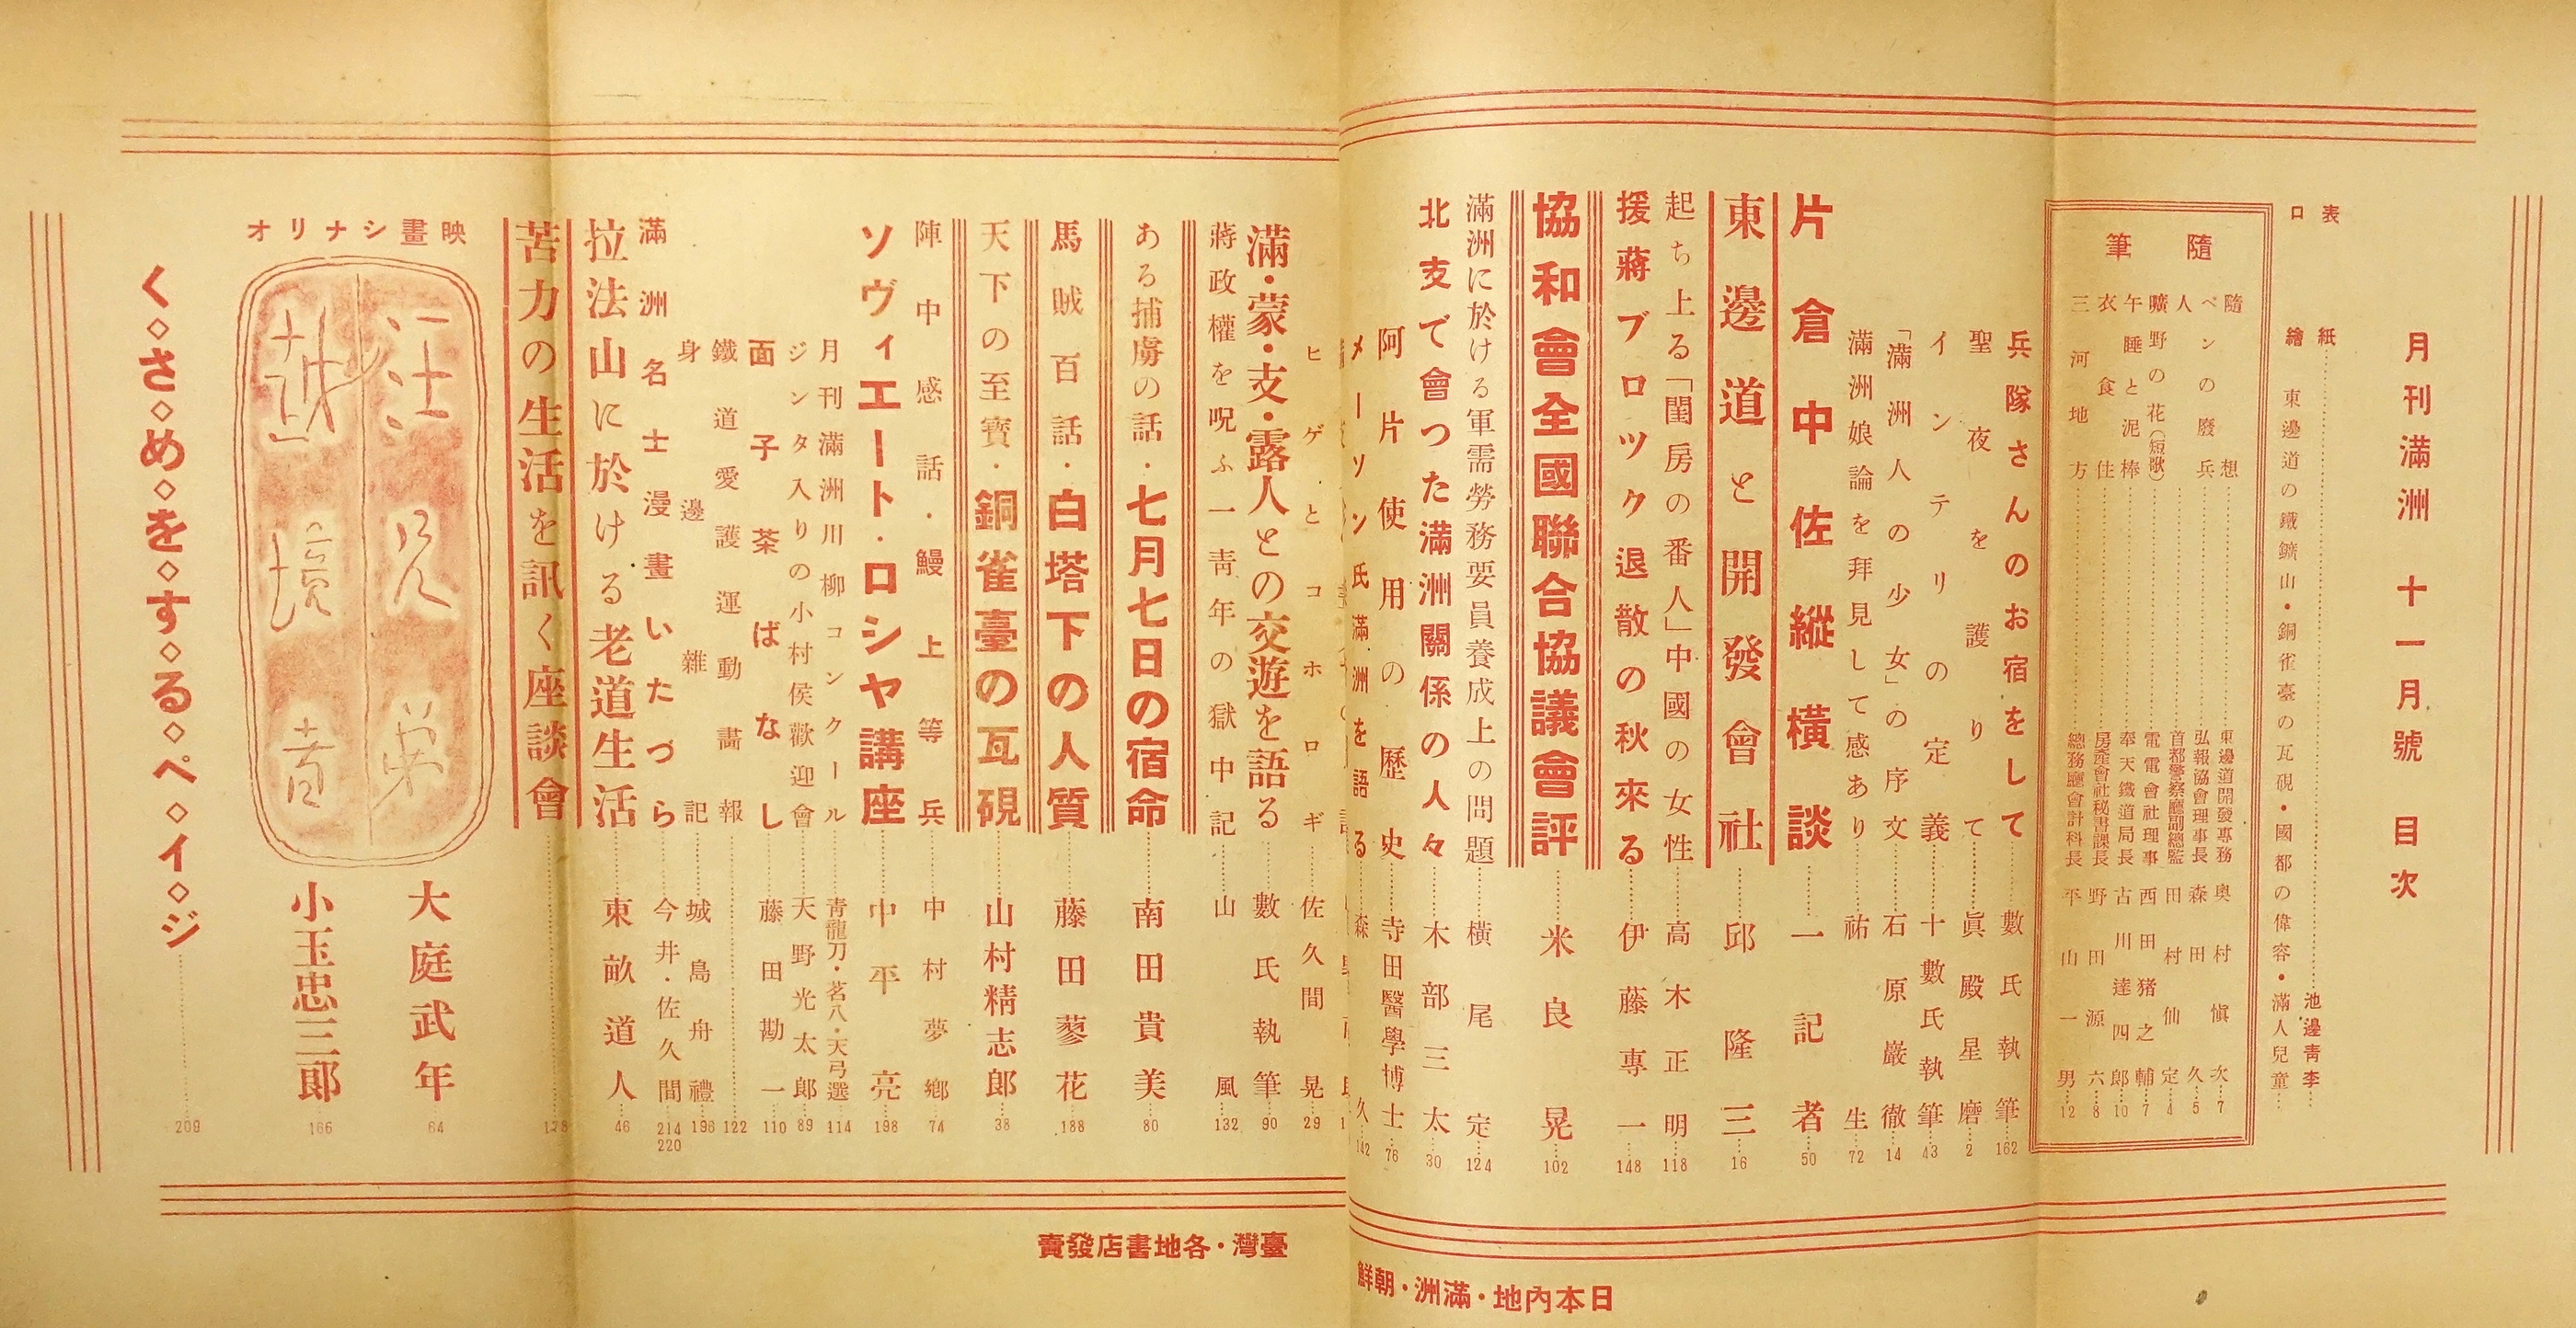 月刊滿洲 十一月號 目次
表紙……池邊青李…
口繪 東邊道の鐵鑛山・銅雀臺の瓦硯・國都の偉容・滿人兒童…
隨筆
隨想……東邊道開發專務 奥村愼次…7
ペンの廢兵……弘報協會理事長 森田久…5
人……首都警察廳副總監 田村仙定…4
曠野の花(短歌)……電電會社理事 西田猪之輔…7
午睡と泥棒……奉天鐵道局長 古川達四郎…10
衣食住……房產會社秘書課長 野田源六…8
三河地方……總務廳會計科長 平山一男…12
兵隊さんのお宿をして……數氏執筆…162
聖夜を護りて……眞殿星磨…2
インテリの定義……十數氏執筆…43
「滿洲人の少女」の序文……石原巖徹…14
滿洲娘論を拜見して感あり……祐生…72
片倉中佐縱橫談……一記者…50
東邊道と開發會社……邱隆三…16
起ち上る「閨房の番人」中國の女性……高木正明…118
援蔣ブロック退散の秋來る……伊藤專一…148
協和會全國聯合協議會評……米良晃…102
滿洲に於ける軍需勞務要員養成上の問題……橫尾定…124
北支で會つた滿洲關係の人々……木部三太…30
阿片使用の歷史……寺田醫學博士…76
メーソン氏滿洲を語る……森久…142
ヒゲとコホロギ……佐久間晃…29
滿・蒙・支・露人との交遊を語る……數氏執筆…90
蔣政權を呪ふ一靑年の獄中記……山風…132
ある捕虜の話・七月七日の宿命……南田貴美…80
馬賊百話・白塔下の人質……藤田蓼花…188
天下の至寶・銅雀臺の瓦硯……山村精志郎…38
陣中感話・鰻上等兵……中村夢鄉…74
ソヴィエート・ロシヤ講座……中平亮…198
月刊滿洲川柳コンクール……青龍刀・茗八・天弓選…114
ジンタ入りの小村侯歡迎會……天野光太郎…89
面子茶ばなし……藤田勘一…110
鐵道愛護運動畫報……122
身邊雜記……城島舟禮…196
滿洲名士漫畫いたづら……今井・佐久間…214 220
拉法山に於ける老道生活……東畝道人…46
苦力の生活を訊く座談會……178
映畫シナリオ
汪兆榮 大庭武年…64
越境者 小玉忠三郎…166
く◇さ◇め◇を◇す◇る◇ペ◇イ◇ジ……209
日本內地・滿洲・朝鮮
臺灣・各地書店發賣